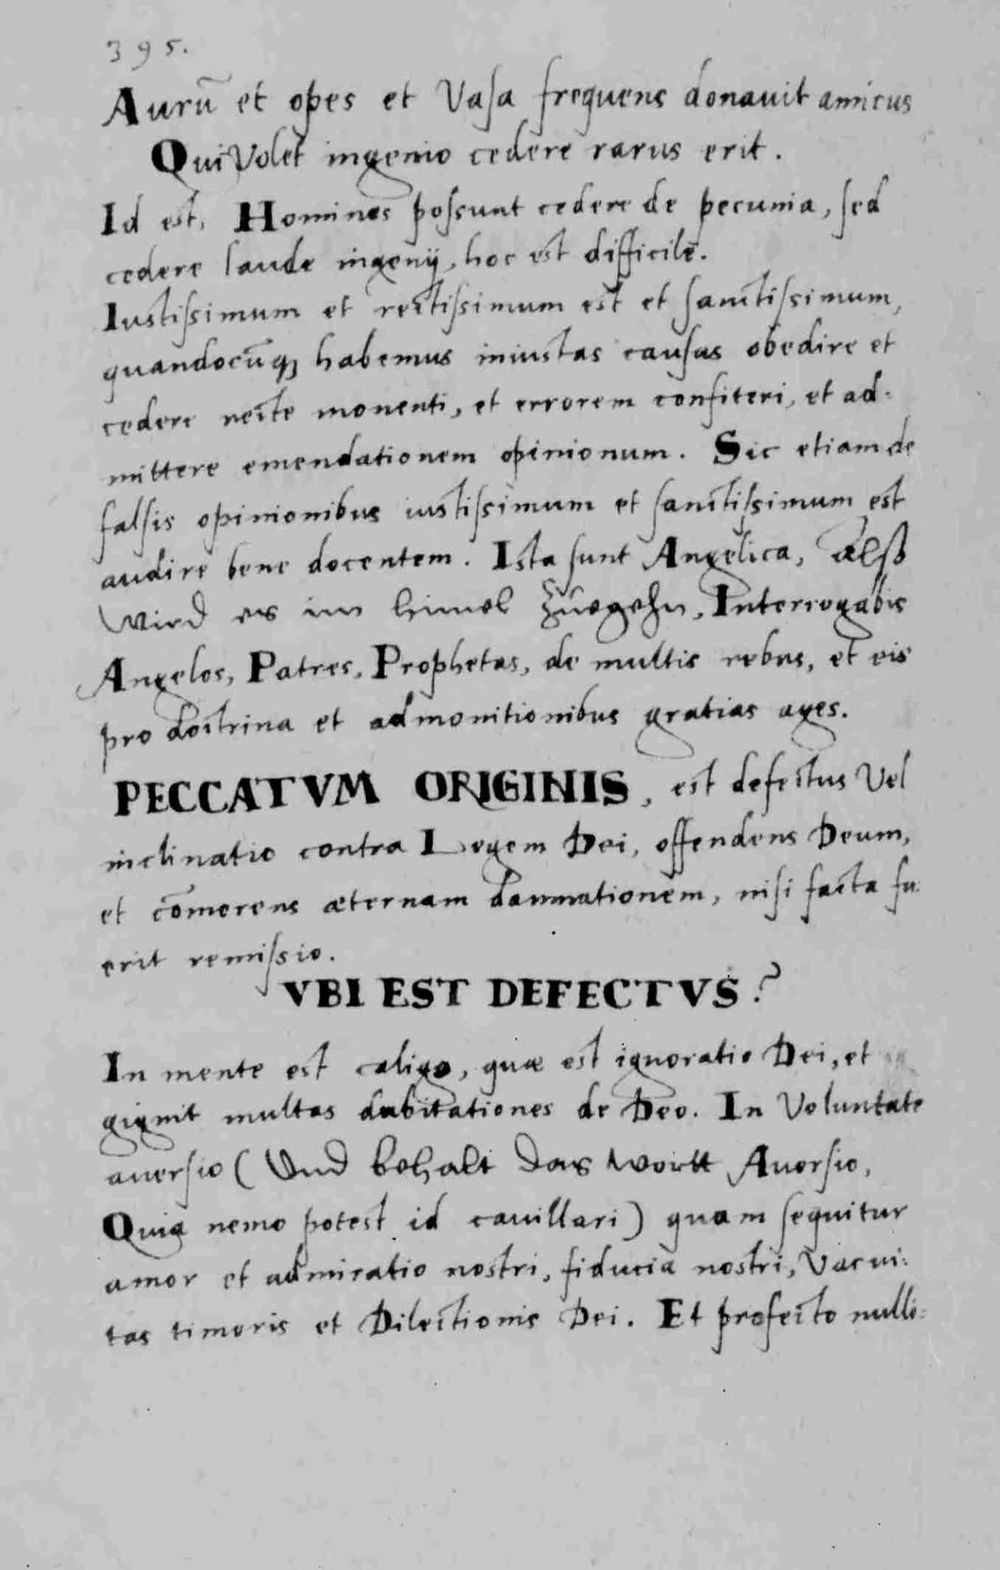 395.
Aurū et opes et Vasa frequens donauit amicus
Qui Volet ingenio cedere rarus erit.
Id est, Homines possunt cedere de pecunia, sed
cedere laude ingenij, hoc est difficile.
Iustissimum et rectissimum est et sanctissimum,
quandocūq; habemus iniustas causas obedire et
cedere recte monenti, et errorem confiteri, et ad:
mittere emendationem opinionum. Sic etiam de
falsis opinionibus iustissimum et sanctissimum est
audire bene docentem. Ista sunt Angelica, Alß
Wird es im himel Zuegehn, Interrogabis
Angelos, Patres, Prophetas, de multis rebus, et eis
pro doctrina et admonitionibus gratias ages.
PECCATVM ORIGINIS, est defectus Vel
inclinatio contra Legem Dei, offendens Deum,
et cōmerens æternam damnationem, nisi facta fu:
erit remissio.
VBI EST DEFECTVS?
In mente est caligo, quæ est ignoratio Dei, et
gignit multas dubitationes de Deo. In Voluntate
auersio (Vnd behalt das wortt Auersio,
Quia nemo potest id cauillari) quam sequitur
amor et admiratio nostri, fiducia nostri, Vacui:
tas timoris et Dilectionis Dei. Et profecto nulli: